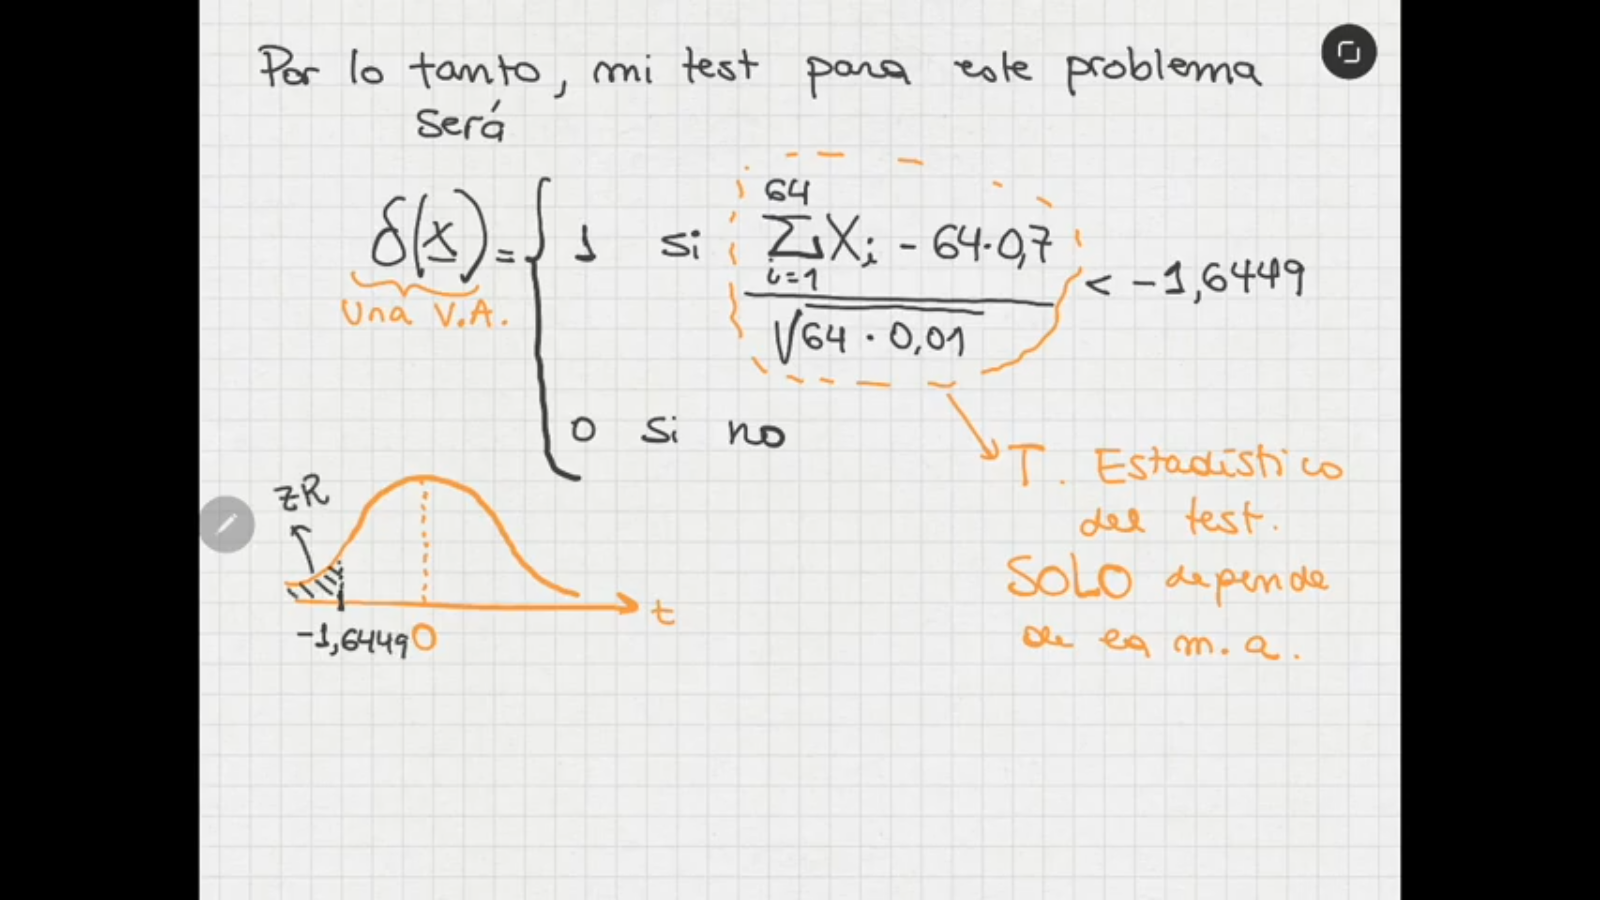 Por lo tanto, mi test para este problema
será
δ(X) = { 1 si (64 Σ i=1 Xi - 64·0,7) / √64 · 0,01 < -1,6449
Una V.A.
0 si no
T. Estadístico
del test.
SOLO depende
de la m.a.
ZR
t
-1,6449 0